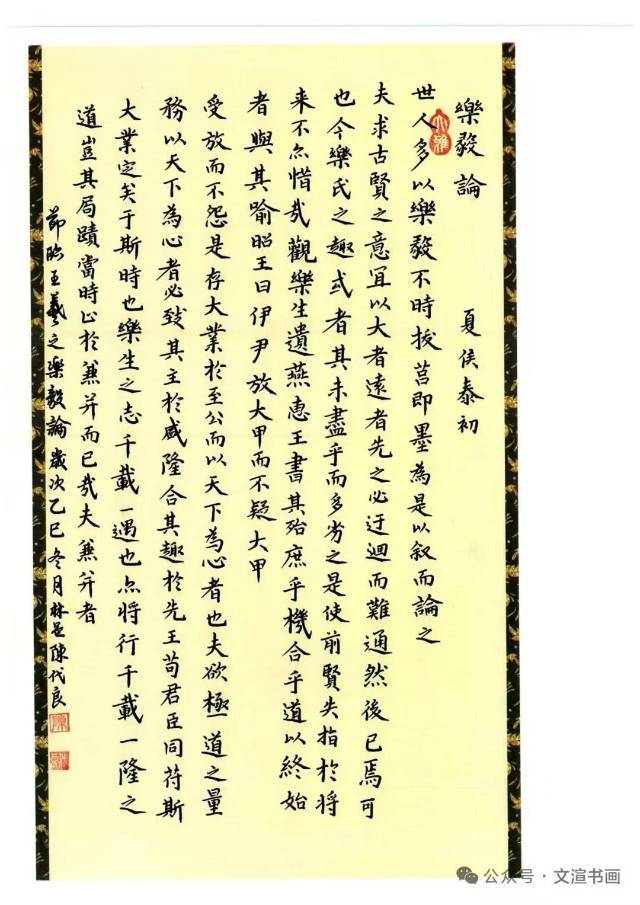 樂毅論 夏侯泰初
世人多以樂毅不時拔莒即墨為是以叙而論之
夫求古賢之意宜以大者遠者先之必迂迴而難通然後已焉可
也今樂氏之趣或者其未盡乎而多劣之是使前賢失指於将
来不亦惜哉觀樂生遺燕惠王書其殆庶乎機合乎道以終始
者與其喻昭王曰伊尹放大甲而不疑大甲
受放而不怨是存大業於至公而以天下為心者也夫欲極道之量
務以天下為心者必致其主於盛隆合其趣於先王苟君臣同苻斯
大業定矣于斯時也樂生之志千載一遇也亦将行千載一隆之
道豈其局蹟當時止於兼并而已哉夫兼并者
節臨王羲之樂毅論歲次乙巳冬月林邑陳代良
公众号·文渲书画